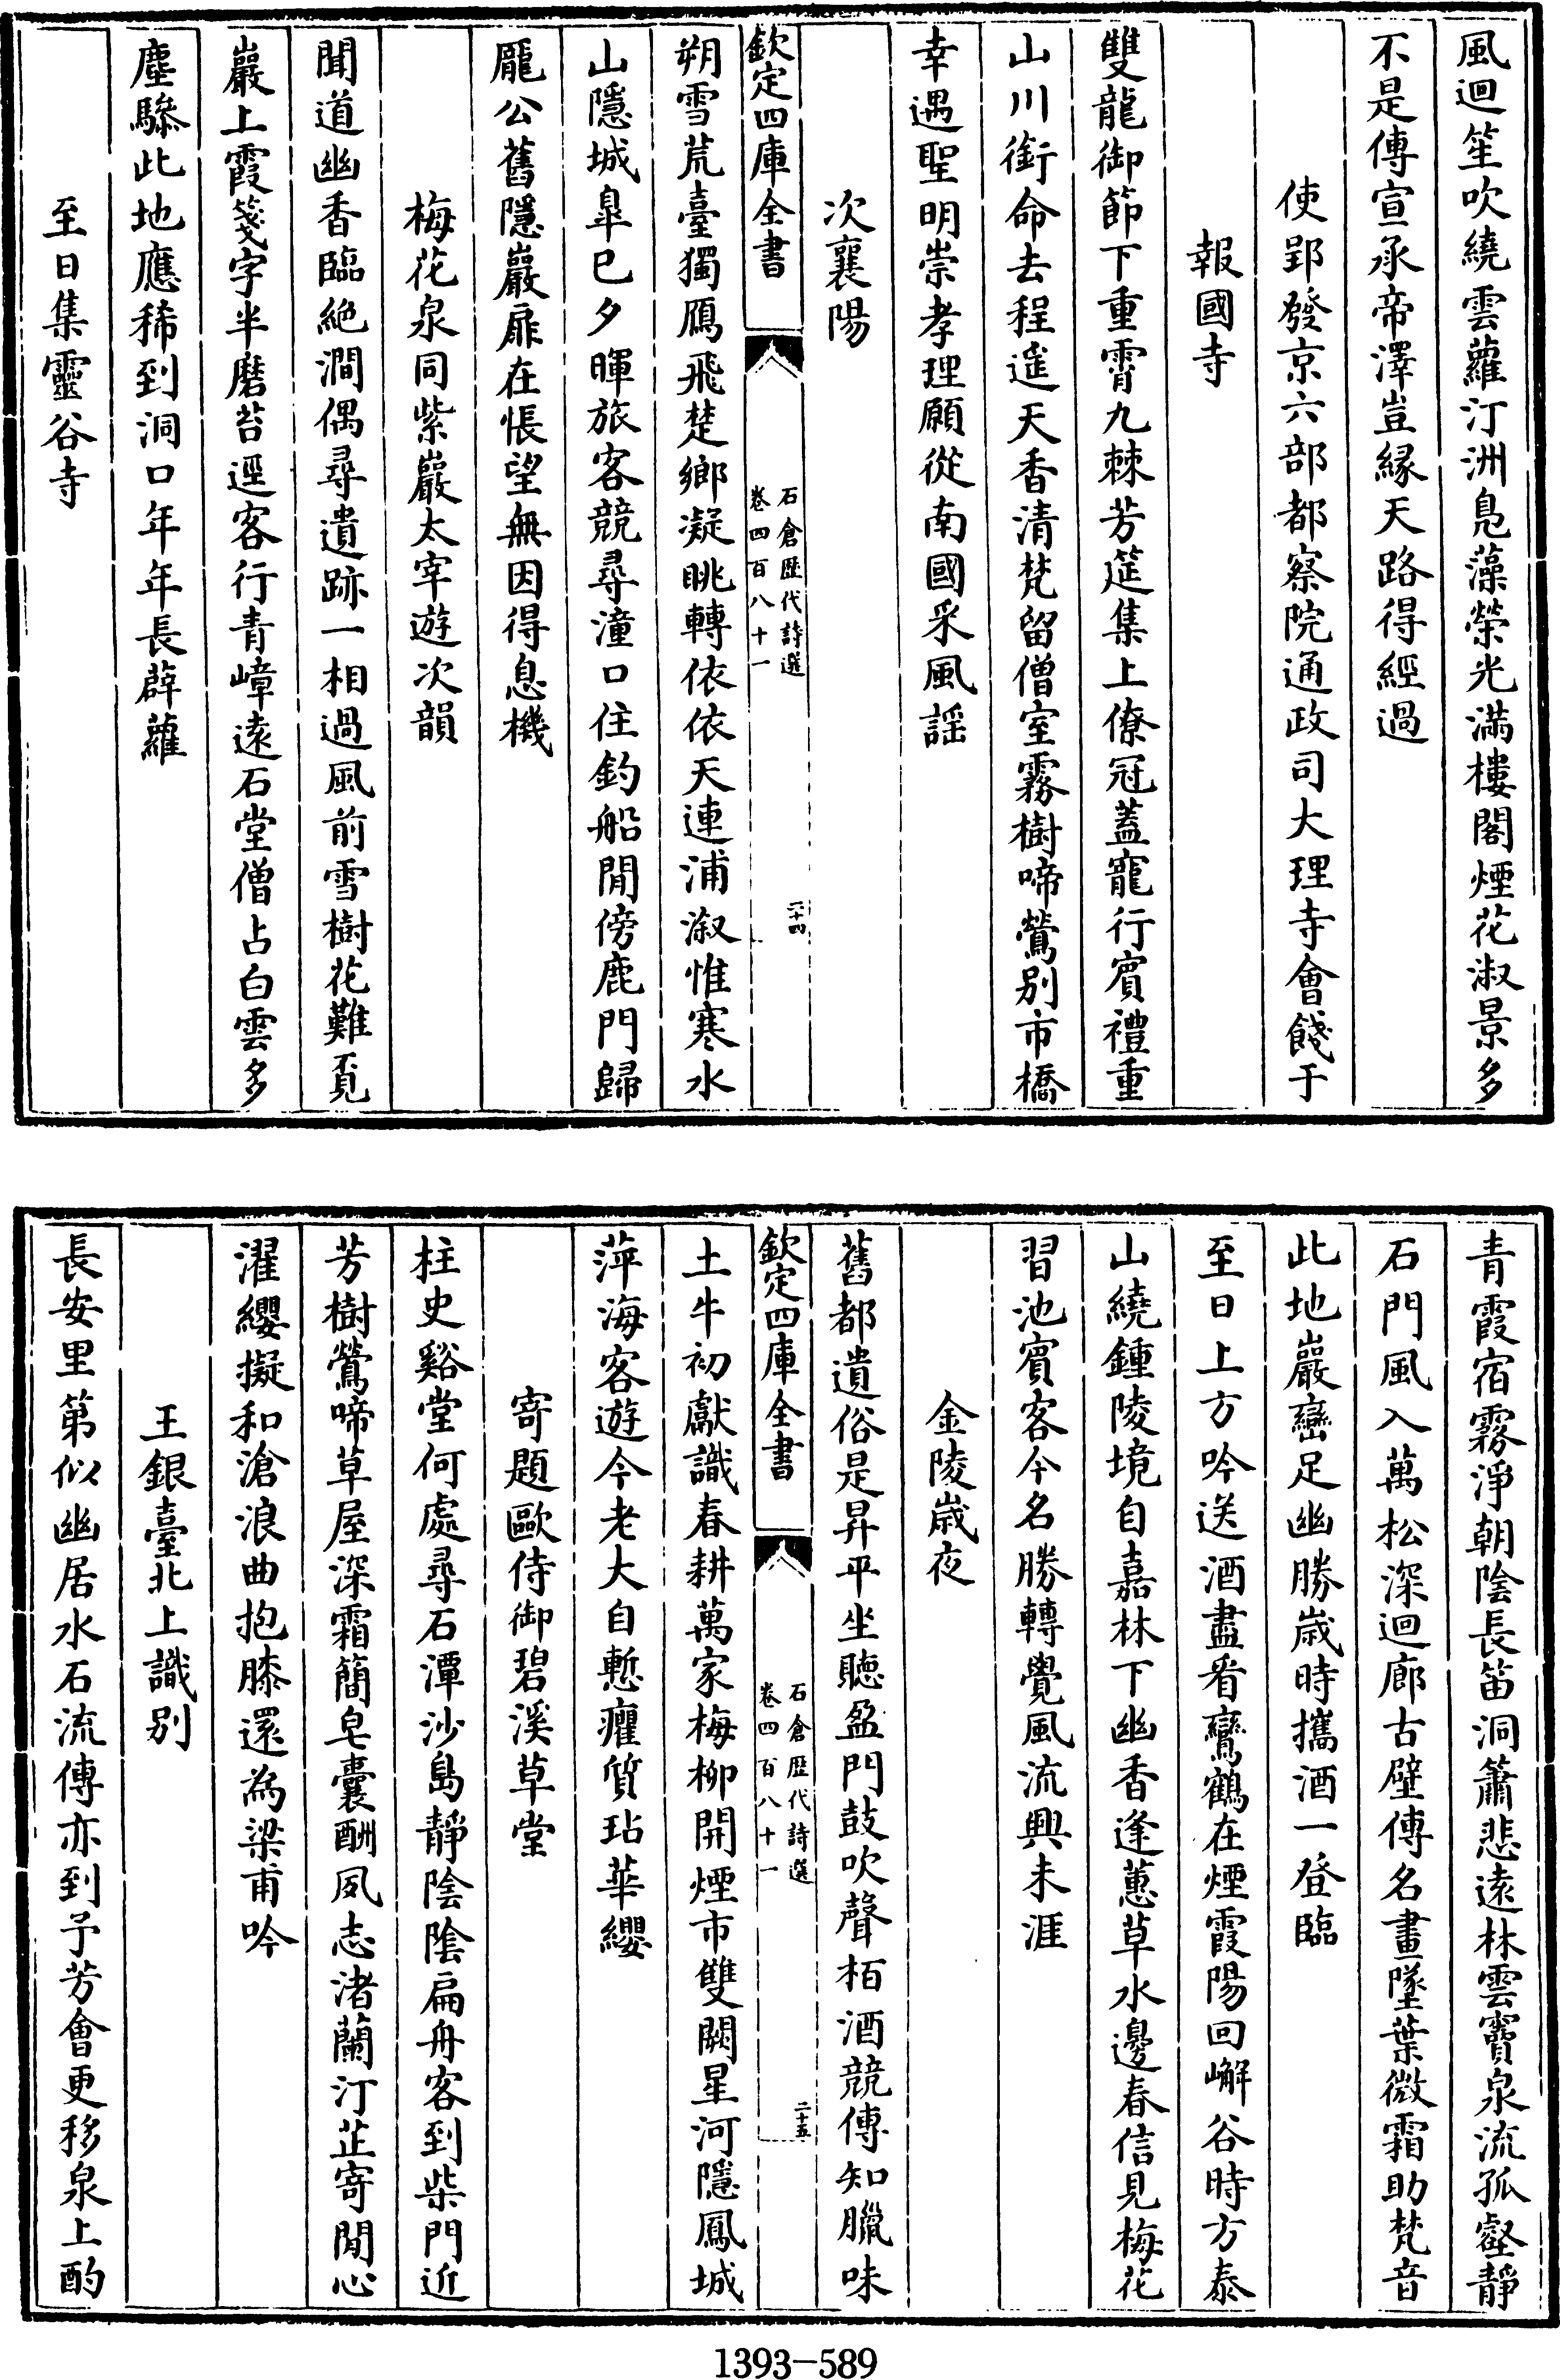 風迴笙吹繞雲蘿汀洲鳬藻榮光滿樓閣煙花淑景多
不是傳宣承帝澤豈緣天路得經過
使郢發京六部都察院通政司大理寺會餞于
報國寺
雙龍御節下重霄九棘芳筵集上僚冠蓋寵行賓禮重
山川銜命去程遥天香清梵留僧室霧樹啼鶯别市橋
幸遇聖明崇孝理願從南國采風謡
次襄陽
欽定四庫全書
石倉歷代詩選
卷四百八十一
二十四
朔雪荒臺獨鴈飛楚鄉凝眺轉依依天連浦溆惟寒水
山隱城皐已夕暉旅客競尋潼口住釣船閒傍鹿門歸
龎公舊隱巖扉在悵望無因得息機
梅花泉同紫巖太宰遊次韻
聞道幽香臨絶澗偶尋遺跡一相過風前雪樹花難覓
巖上霞箋字半磨苔逕客行青嶂遠石堂僧占白雲多
塵驂此地應稀到洞口年年長薜蘿
至日集靈谷寺
青霞宿霧淨朝陰長笛洞簫悲遠林雲竇泉流孤壑靜
石門風入萬松深迴廊古壁傳名畫墜葉微霜助梵音
此地巖巒足幽勝歲時攜酒一登臨
至日上方吟送酒盡看鸞鶴在煙霞陽回嶰谷時方泰
山繞鍾陵境自嘉林下幽香逢蕙草水邊春信見梅花
習池賓客今名勝轉覺風流興未涯
金陵歲夜
舊都遺俗是昇平坐聽盈門鼓吹聲栢酒競傳知臘味
欽定四庫全書
石倉歷代詩選
卷四百八十一
二十五
土牛初獻識春耕萬家梅柳開煙市雙闕星河隱鳳城
萍海客遊今老大自慙癯質玷華纓
寄題歐侍御碧溪草堂
柱史谿堂何處尋石潭沙島靜陰陰扁舟客到柴門近
芳樹鶯啼草屋深霜簡皂囊酬夙志渚蘭汀芷寄閒心
濯纓擬和滄浪曲抱膝還為梁甫吟
王銀臺北上識别
長安里第似幽居水石流傳亦到予芳會更移泉上酌
1393-589